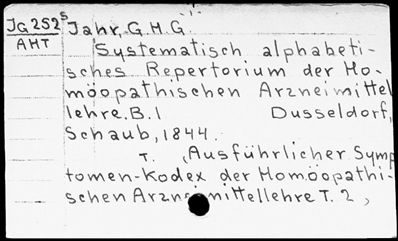 JG252s Jahr, G.H.G
AHT
Systematisch alphabeti-
sches Repertorium der Ho-
möopathischen Arzneimittel
lehre. B.1 Dusseldorf,
Schaub, 1844.
T. , Ausführlicher Symp
tomen-Kodex der Homöopathi-
schen Arzneimittellehre T. 2,